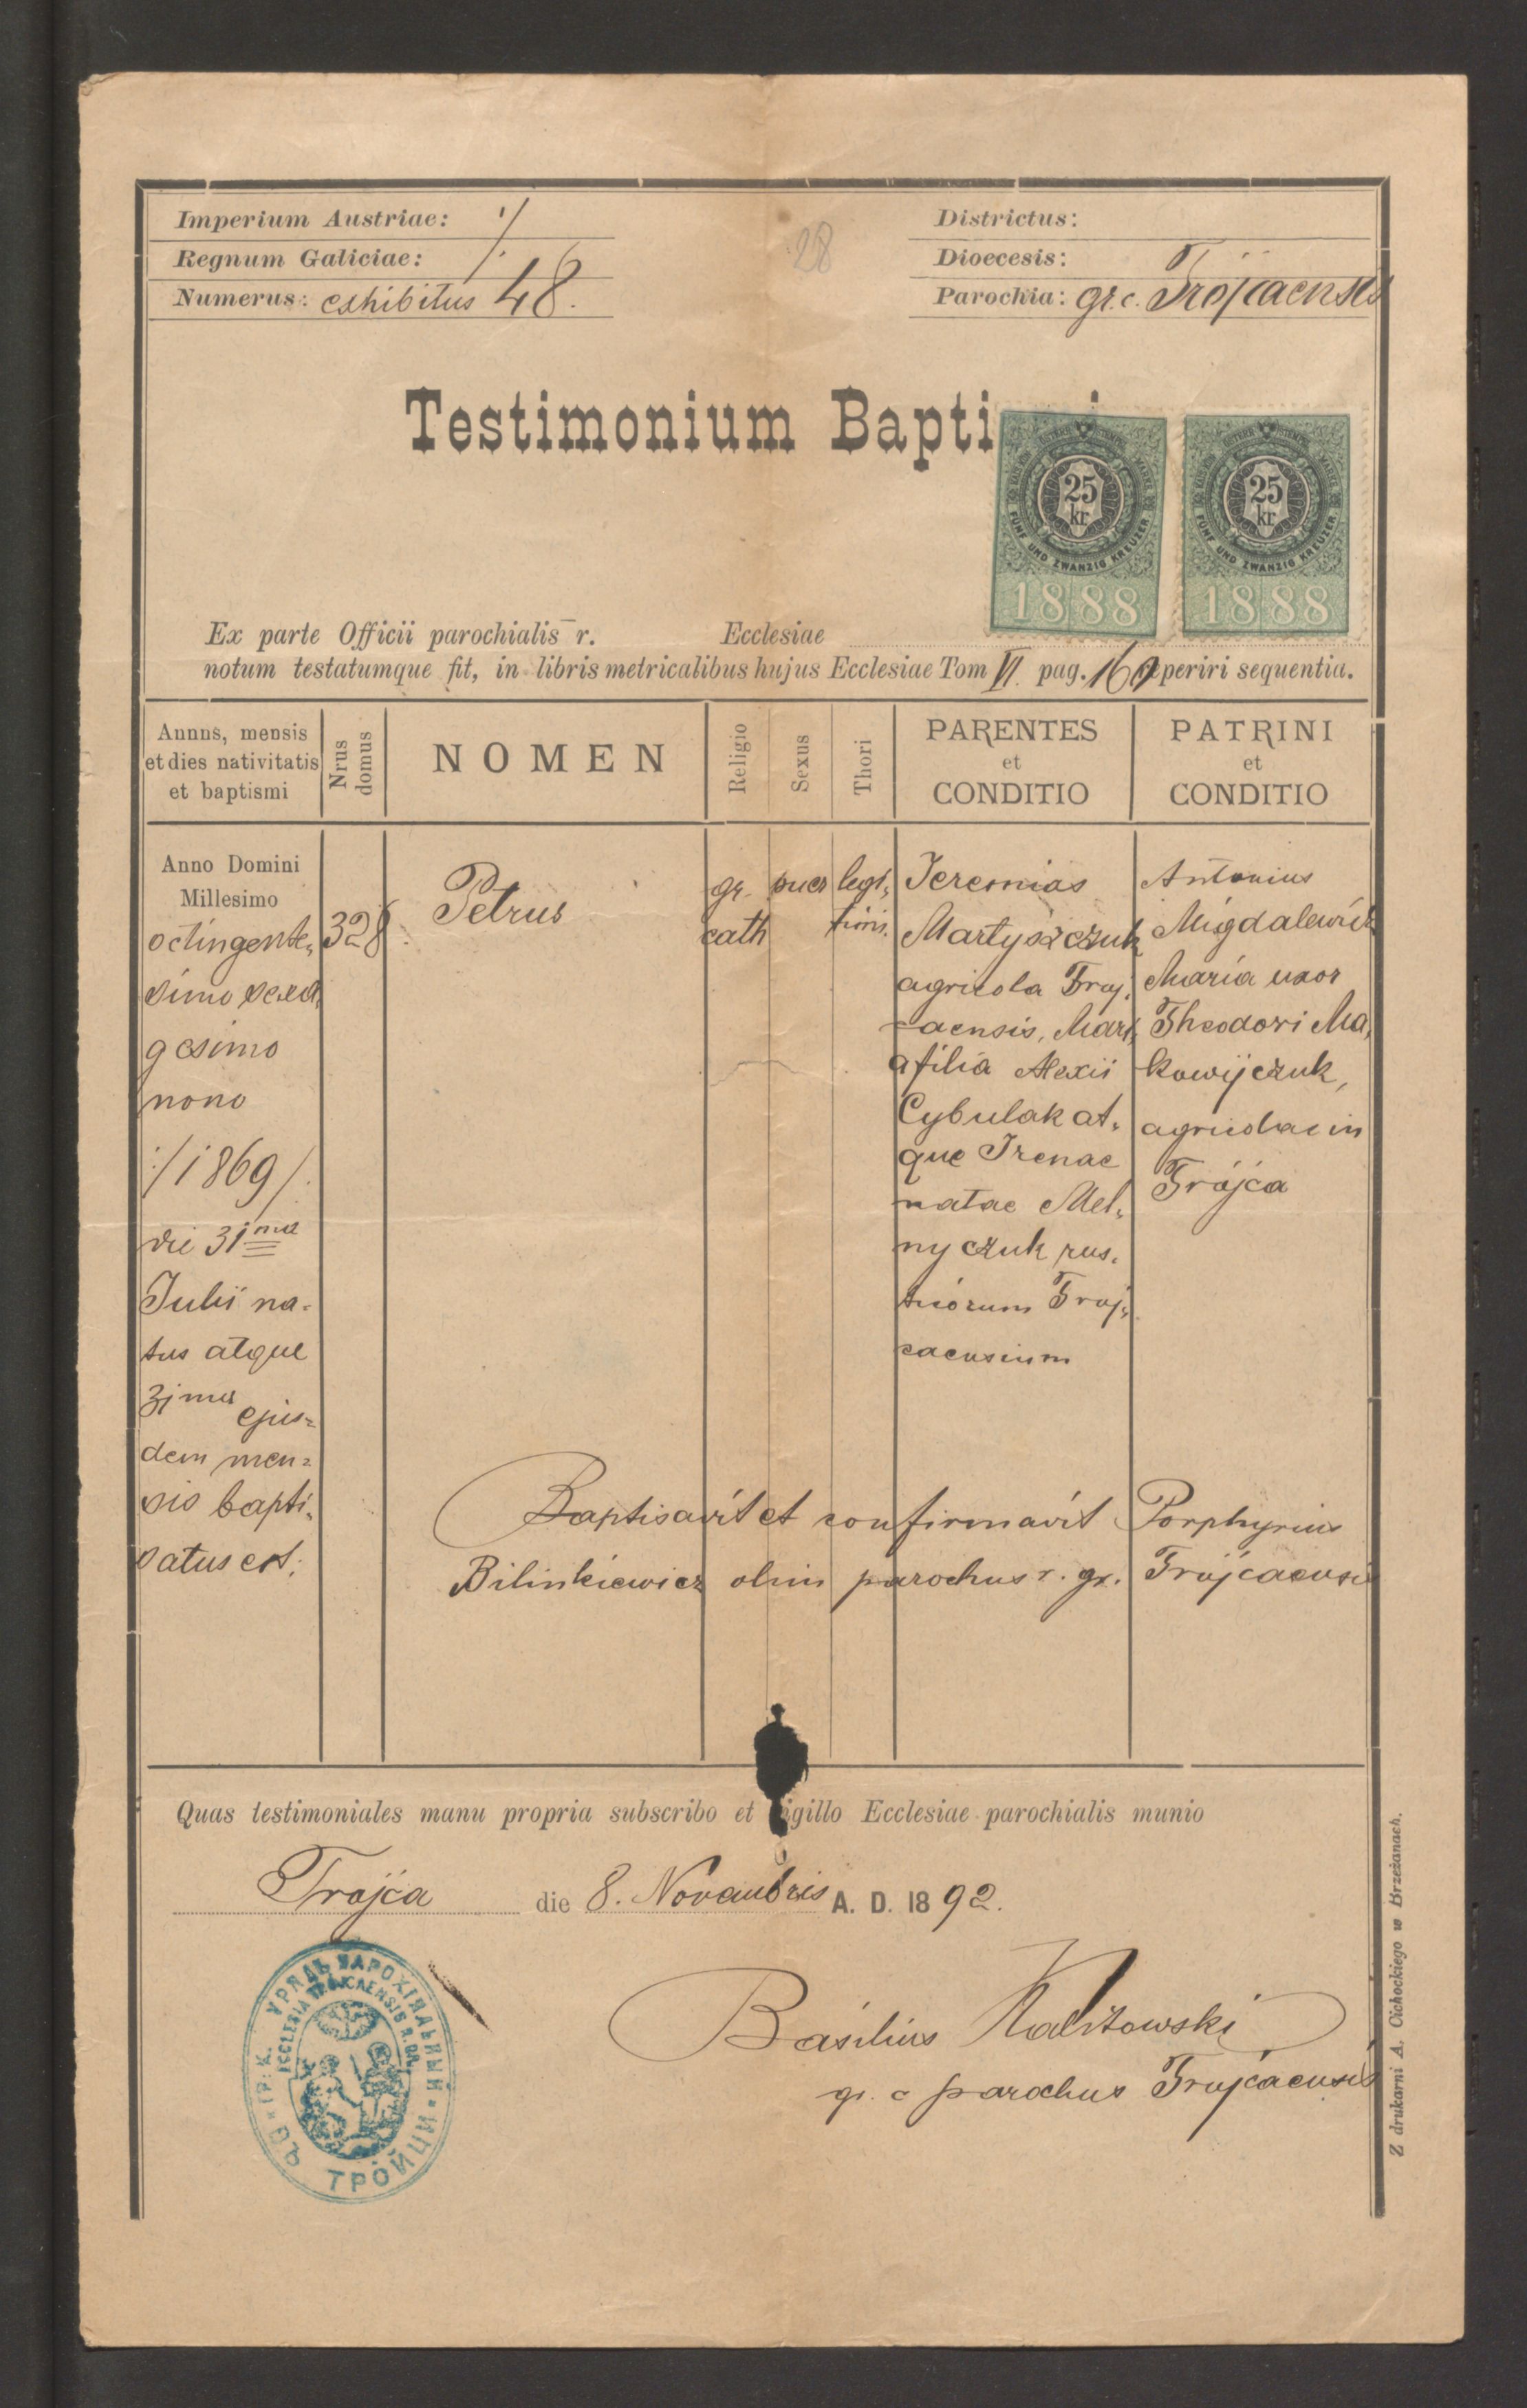 Imperium Austriae: ·/.
Regnum Galiciae:
Numerus: exhibitus 48.
28
Districtus:
Dioecesis:
Parochia: gr. c. Trójcaensis
Testimonium Bapti
25
kr
FÜNF UND ZWANZIG KREUZER
1888
25
kr
FÜNF UND ZWANZIG KREUZER
1888
Ex parte Officii parochialis r. Ecclesiae
notum testatumque fit, in libris metricalibus hujus Ecclesiae Tom VI. pag. periri sequentia.
Annus, mensis
et dies nativitatis
et baptismi
Nrus
domus
NOMEN
Religio
Sexus
Thori
PARENTES
et
CONDITIO
PATRINI
et
CONDITIO
Anno Domini
Millesimo
octingente„
simo sexa„
gesimo
nono
:/1869/:
die 31ma
Julii na-
tus atque
31ma ejus=
dem men=
sis bapti„
satus est;
328.
Petrus
gr.
cath
puer
legi„
timi.
Jeremias
Martyszczuk
agricola Troj„
caensis, Mari„
a filia Alexii
Cybulak at„
que Irenae
natae Mel„
nyczuk rus„
ticorum Troj„
caensium
Antonius
Migdalewicz
Maria uxor
Theodori Ma„
kowijczuk,
agricolae in
Trójca
Baptisavit et confirmavit Porphyrius
Bilinkiewicz olim parochus r. gr. Trójcaensis
Quas testimoniales manu propria subscribo et sigillo Ecclesiae parochialis munio
Trojca die 8. Novembris A. D. 1892.
УРЯДЪ ПАРОХІЯЛЬНЫЙ ГР. К. ВЪ ТРÔЙЦИ
Basilius
gr. c parochus Trojcaensis
Z drukarni A. Cichockiego w Brzeżanach.